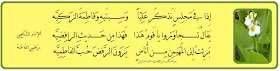 إذا في مجلس نذكر عليا وسبطيه وفاطمة الزكية
يقال تجاوزوا يا قوم هذا فهذا من حديث الرافضية
برئت إلى المهيمن من أناس يرون الرفض حب الفاطمية